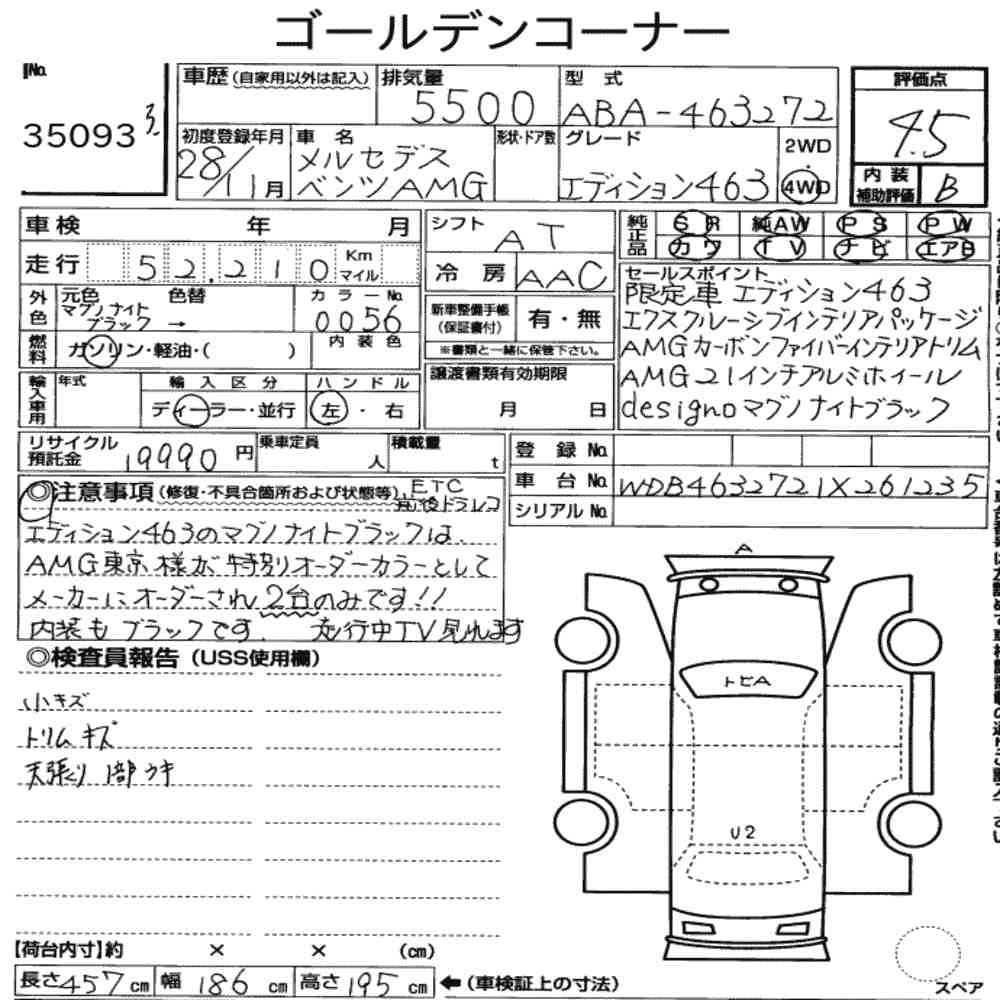 ゴールデンコーナー
No.
35093 3
車歴 (自家用以外は記入)
排気量
5500
型 式
ABA-463272
評価点
4.5
初度登録年月
28/11月
車 名
メルセデス
ベンツAMG
形状・ドア数
グレード
エディション463
2WD
・
4WD
内 装
補助評価
B
車検 年 月
走行 52,210 Km
マイル
シフト
AT
冷 房 AAC
純正品
SR 純AW PS PW
カワ TV ナビ エアB
外色
元色 色替
マグノナイト
ブラック →
カラーNo.
0056
燃料
ガソリン・軽油・( )
内 装 色
新車整備手帳
(保証書付)
有・無
※書類と一緒に保管下さい。
セールスポイント
限定車 エディション463
エクスクルーシブインテリアパッケージ
AMGカーボンファイバーインテリアトリム
AMG21インチアルミホイール
designoマグノナイトブラック
輸入車用
年式
輸 入 区 分
ディーラー・並行
ハ ン ド ル
左 ・ 右
譲渡書類有効期限
月 日
リサイクル
預託金
19990 円
乗車定員
人
積載量
t
登 録 No.
車 台 No. WDB4632721X261235
シリアル No.
◎注意事項 (修復・不具合箇所および状態等) ETC
前後ドラレコ
エディション463のマグノナイトブラックは、
AMG東京様が特別オーダーカラーとして
メーカーにオーダーされ2台のみです!!
内装もブラックです. 走行中TV見れます
◎検査員報告 (USS使用欄)
小キズ
トリムキズ
天張り1部ウキ
A
トビA
U2
【荷台内寸】約 × × (cm)
長さ 457 cm 幅 186 cm 高さ 195 cm ←(車検証上の寸法)
スペア